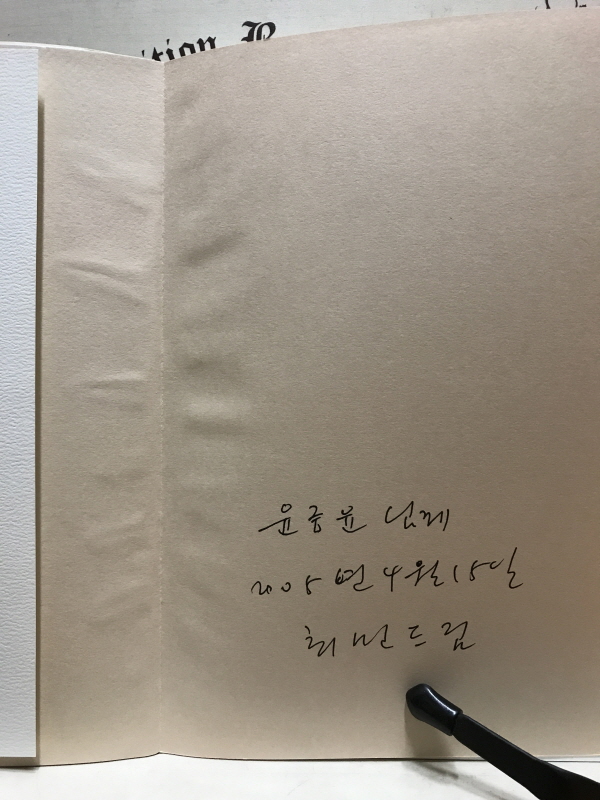 ition
윤중윤 님께
2005년 4월 15일
최 드림